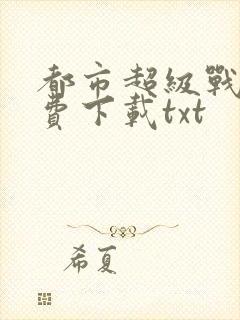 都市超級戰
費下載txt
希夏